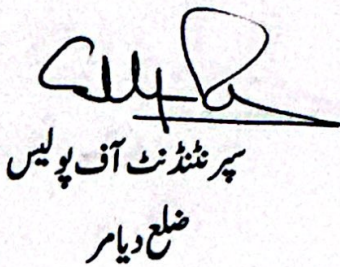 سپرنٹنڈنٹ آف پولیس
ضلع دیامر